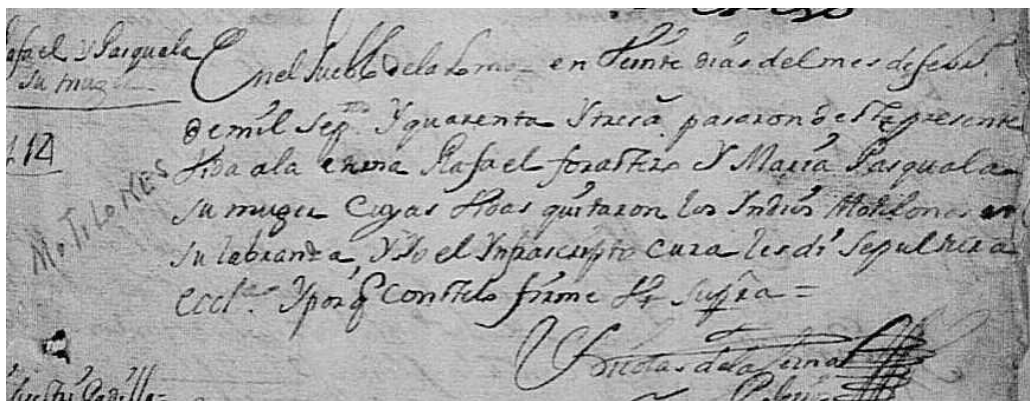 Rafael Y Pasquala
su muger
En el Pueblo dela Loma en Veinte dias del mes de febr.
de mil Sep.tos Y quarenta Y tres a. pasaron deste presente
Vida ala eterna Rafael forastero Y Maria Pasquala
su muger Cuyas Vidas quitaron los Indios Motilones en
MOTILONES
su labranza Y Yo el Ynfrascripto Cura les di Sepultura
eccl.ca Y porq conste lo firme Vt Supra =
Nicolas de la Serna